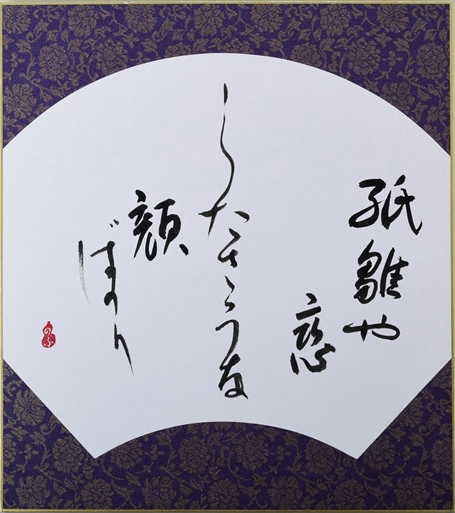 紙雛や
恋
したさうな
顔
ばかり